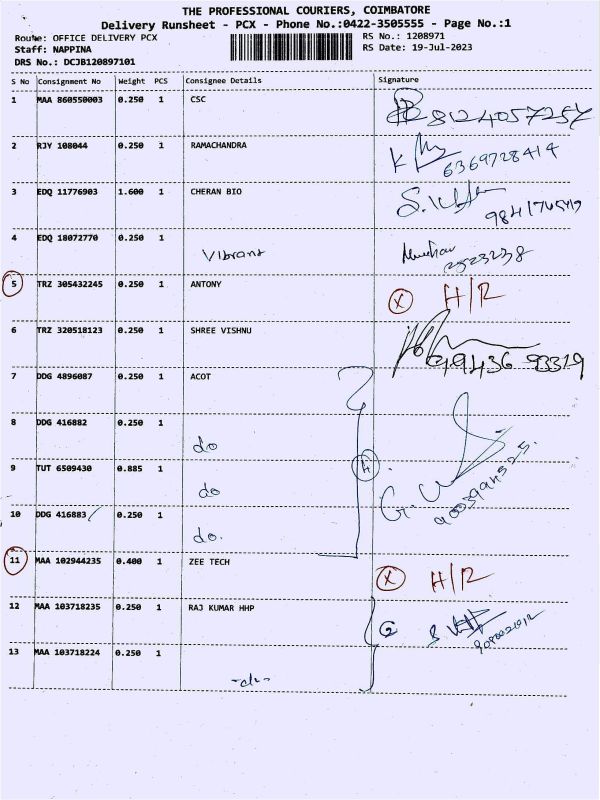 THE PROFESSIONAL COURIERS, COIMBATORE
Delivery Runsheet - PCX - Phone No.:0422-3505555 - Page No.:1
Route: OFFICE DELIVERY PCX RS No.: 1208971
Staff: NAPPINA RS Date: 19-Jul-2023
DRS No.: DCJB120897101
S No Consignment No Weight PCS Consignee Details Signature
1 MAA 860550003 0.250 1 CSC
2 RJY 108044 0.250 1 RAMACHANDRA 6369728414
3 EDQ 11776903 1.600 1 CHERAN BIO
4 EDQ 18072770 0.250 1 Vibrant
5 TRZ 305432245 0.250 1 ANTONY X H/R
6 TRZ 320518123 0.250 1 SHREE VISHNU
7 DDG 4896087 0.250 1 ACOT
8 DDG 416882 0.250 1 do
9 TUT 6509430 0.885 1 do 4
10 DDG 416883 0.250 1 do.
11 MAA 102944235 0.400 1 ZEE TECH X H/R
12 MAA 103718235 0.250 1 RAJ KUMAR HHP 2
13 MAA 103718224 0.250 1 -do-